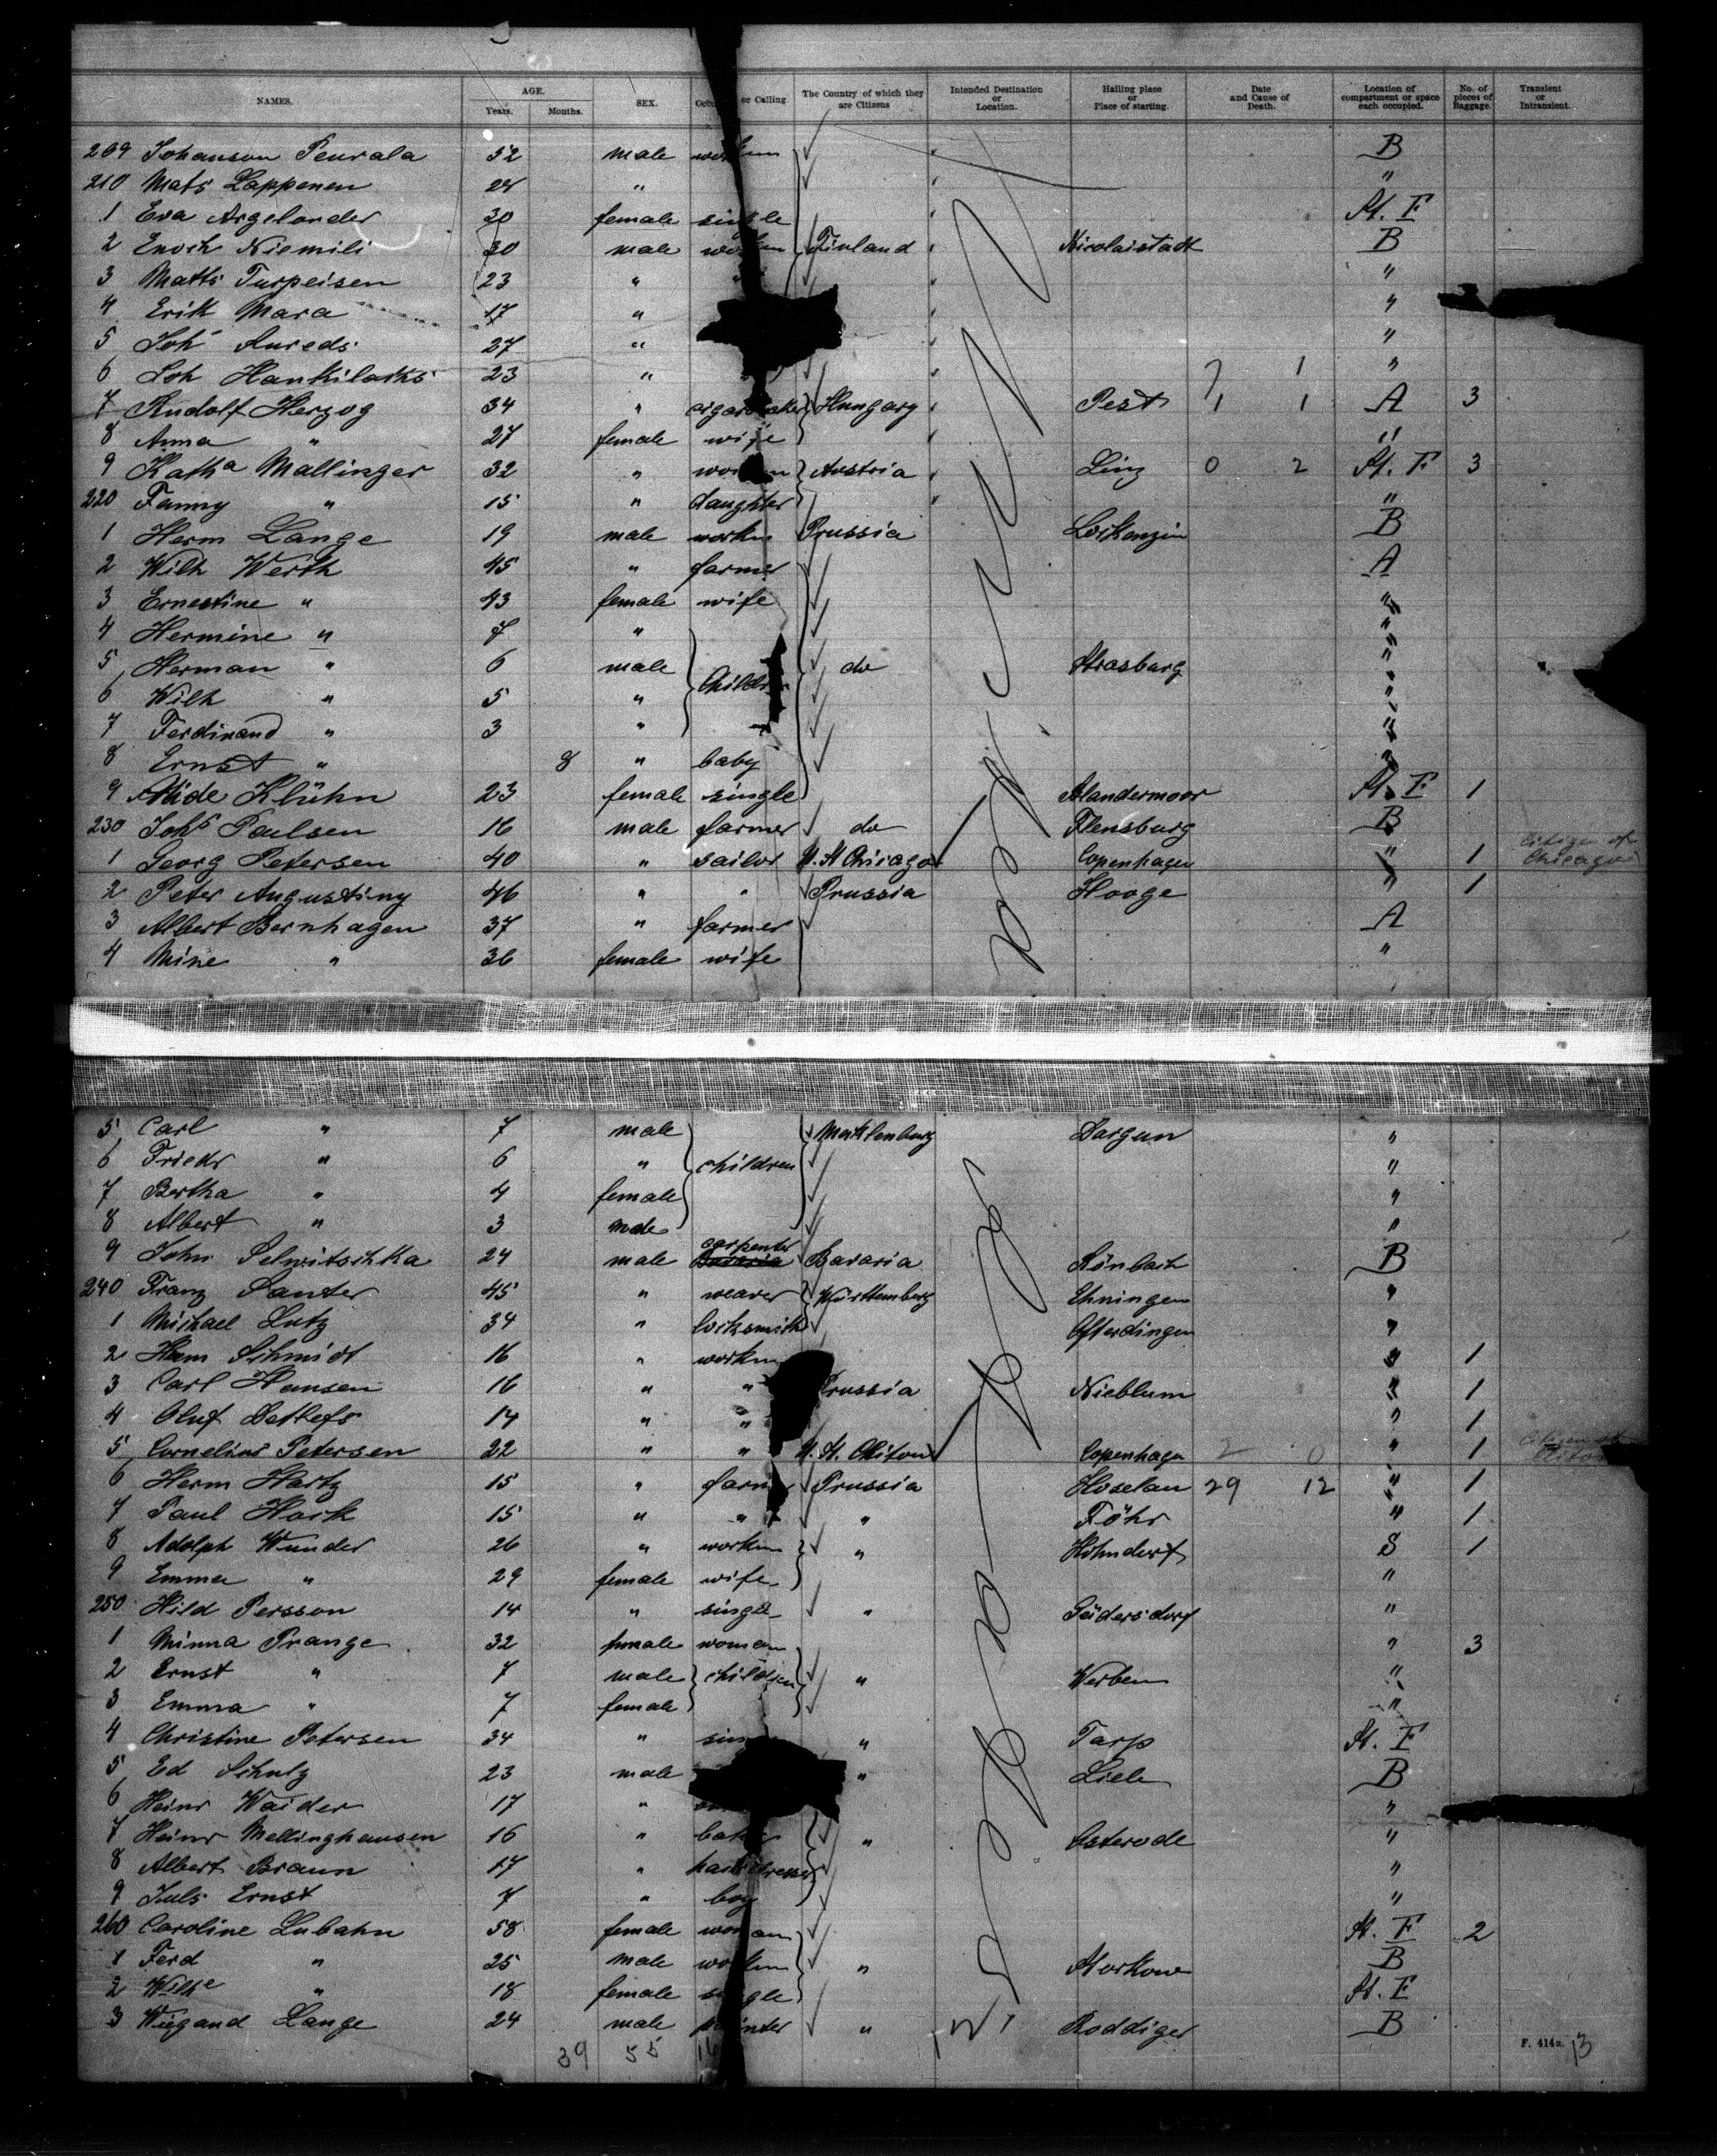 NAMES. AGE. Years. Months. SEX. or Calling The Country of which they are Citizens Intended Destination or Location. Halling place or Place of starting. Date and Cause of Death. Location of compartment or space each occupied. No. of pieces of Baggage. Transient or Intransient.
209 Johanson Peurala 52 male B
210 Mats Lappenen 24 " "
1 Eva Argelander 30 female single St. F
2 Enoch Niemili 30 male Finland Nicolaistadt B
3 Matts Turpeisen 23 " "
4 Erik Mara 17 " "
5 Joh Aureds 27 " "
6 Joh Hankilaiks 23 " " 7 1
7 Rudolf Herzog 34 " Hungary Pest 1 1 A 3
8 Anna " 27 female wife "
9 Katha Mallinger 32 " Austria Linz 0 2 St. F 3
220 Fanny " 15 " daughter "
1 Herm Lange 19 male workm Prussia Lockenzin B
2 Wilh Werth 45 " farmer A
3 Ernestine " 43 female wife "
4 Hermine " 7 " "
5 Herman " 6 male do Strasburg "
6 Wilh " 5 " "
7 Ferdinand " 3 " "
8 Ernst " 8 " baby "
9 Klühn 23 female single Standermoor St. F 1
230 Johs Paulsen 16 male farmer do Flensburg B
1 Georg Petersen 40 " sailor U. St Chicago Copenhagen " 1 Citizen of Chicago
2 Peter Augustiny 46 " " Prussia Hooge " 1
3 Albert Bernhagen 37 " farmer A
4 Mine " 36 female wife "
5 Carl " 7 male Mecklenburg Dargun "
6 Friedr " 6 " children "
7 Bertha " 4 female "
8 Albert " 3 male "
9 John Selwitschka 24 male carpenter Bavaria Bavaria Rönbach B
240 Franz Sauter 45 " weaver Württemberg Ehningen "
1 Michael Lutz 34 " locksmith Ofterdingen "
2 Herm Schmidt 16 " workm " 1
3 Carl Hansen 16 " " Prussia Nieblum " 1
4 Oluf Detlefs 14 " " " 1
5 Cornelius Petersen 22 " " U. St. Copenhagen 2 0 " 1 Citizen of
6 Herm Hartz 15 " Prussia Hoselau 29 12 " 1
7 Paul Hork 15 " " " Föhr " 1
8 Adolph Wunder 26 " workm " Höhndorf S 1
9 Emma " 29 female wife "
250 Hild Persson 14 " single " Südersdorf "
1 Minna Prange 32 female woman " 3
2 Ernst " 7 male children " Werben "
3 Emma " 7 female "
4 Christine Petersen 34 " " Tarp St. F
5 Ed Schulz 23 male " Liele B
6 Heinr Waider 17 " "
7 Heinr Mellinghausen 16 " " Osterode "
8 Albert Braun 17 " "
9 Juls Ernst 7 " boy "
260 Caroline Lubahn 58 female woman St. F 2
1 Ferd " 25 male " Storkow B
2 Wilhe " 18 female single St. F
3 Wiegand Lange 24 male " Roddiger B
39 55
F. 414a. 13